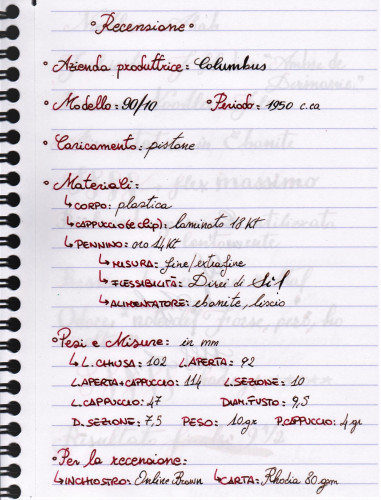 ° Recensione °
° Azienda produttrice: Columbus
° Modello: 90/10 ° Periodo: 1950 c.ca
° Caricamento: pistone
° Materiali:
↳ CORPO: plastica
↳ CAPPUCCIO (e clip): laminato 18 Kt
↳ PENNINO: oro 14 Kt
↳ MISURA: fine/extrafine
↳ FLESSIBILITÀ: Direi di sì!
↳ ALIMENTATORE: ebanite, liscio
° Pesi e Misure: in mm
↳ L. CHIUSA: 102 L. APERTA: 92
L. APERTA+CAPPUCCIO: 114 L. SEZIONE: 10
L. CAPPUCCIO: 47 DIAM. FUSTO: 9,5
D. SEZIONE: 7,5 PESO: 10 gr P. CAPPUCCIO: 4 gr
° Per la recensione:
↳ INCHIOSTRO: Online Brown ↳ CARTA: Rhodia 80 gam